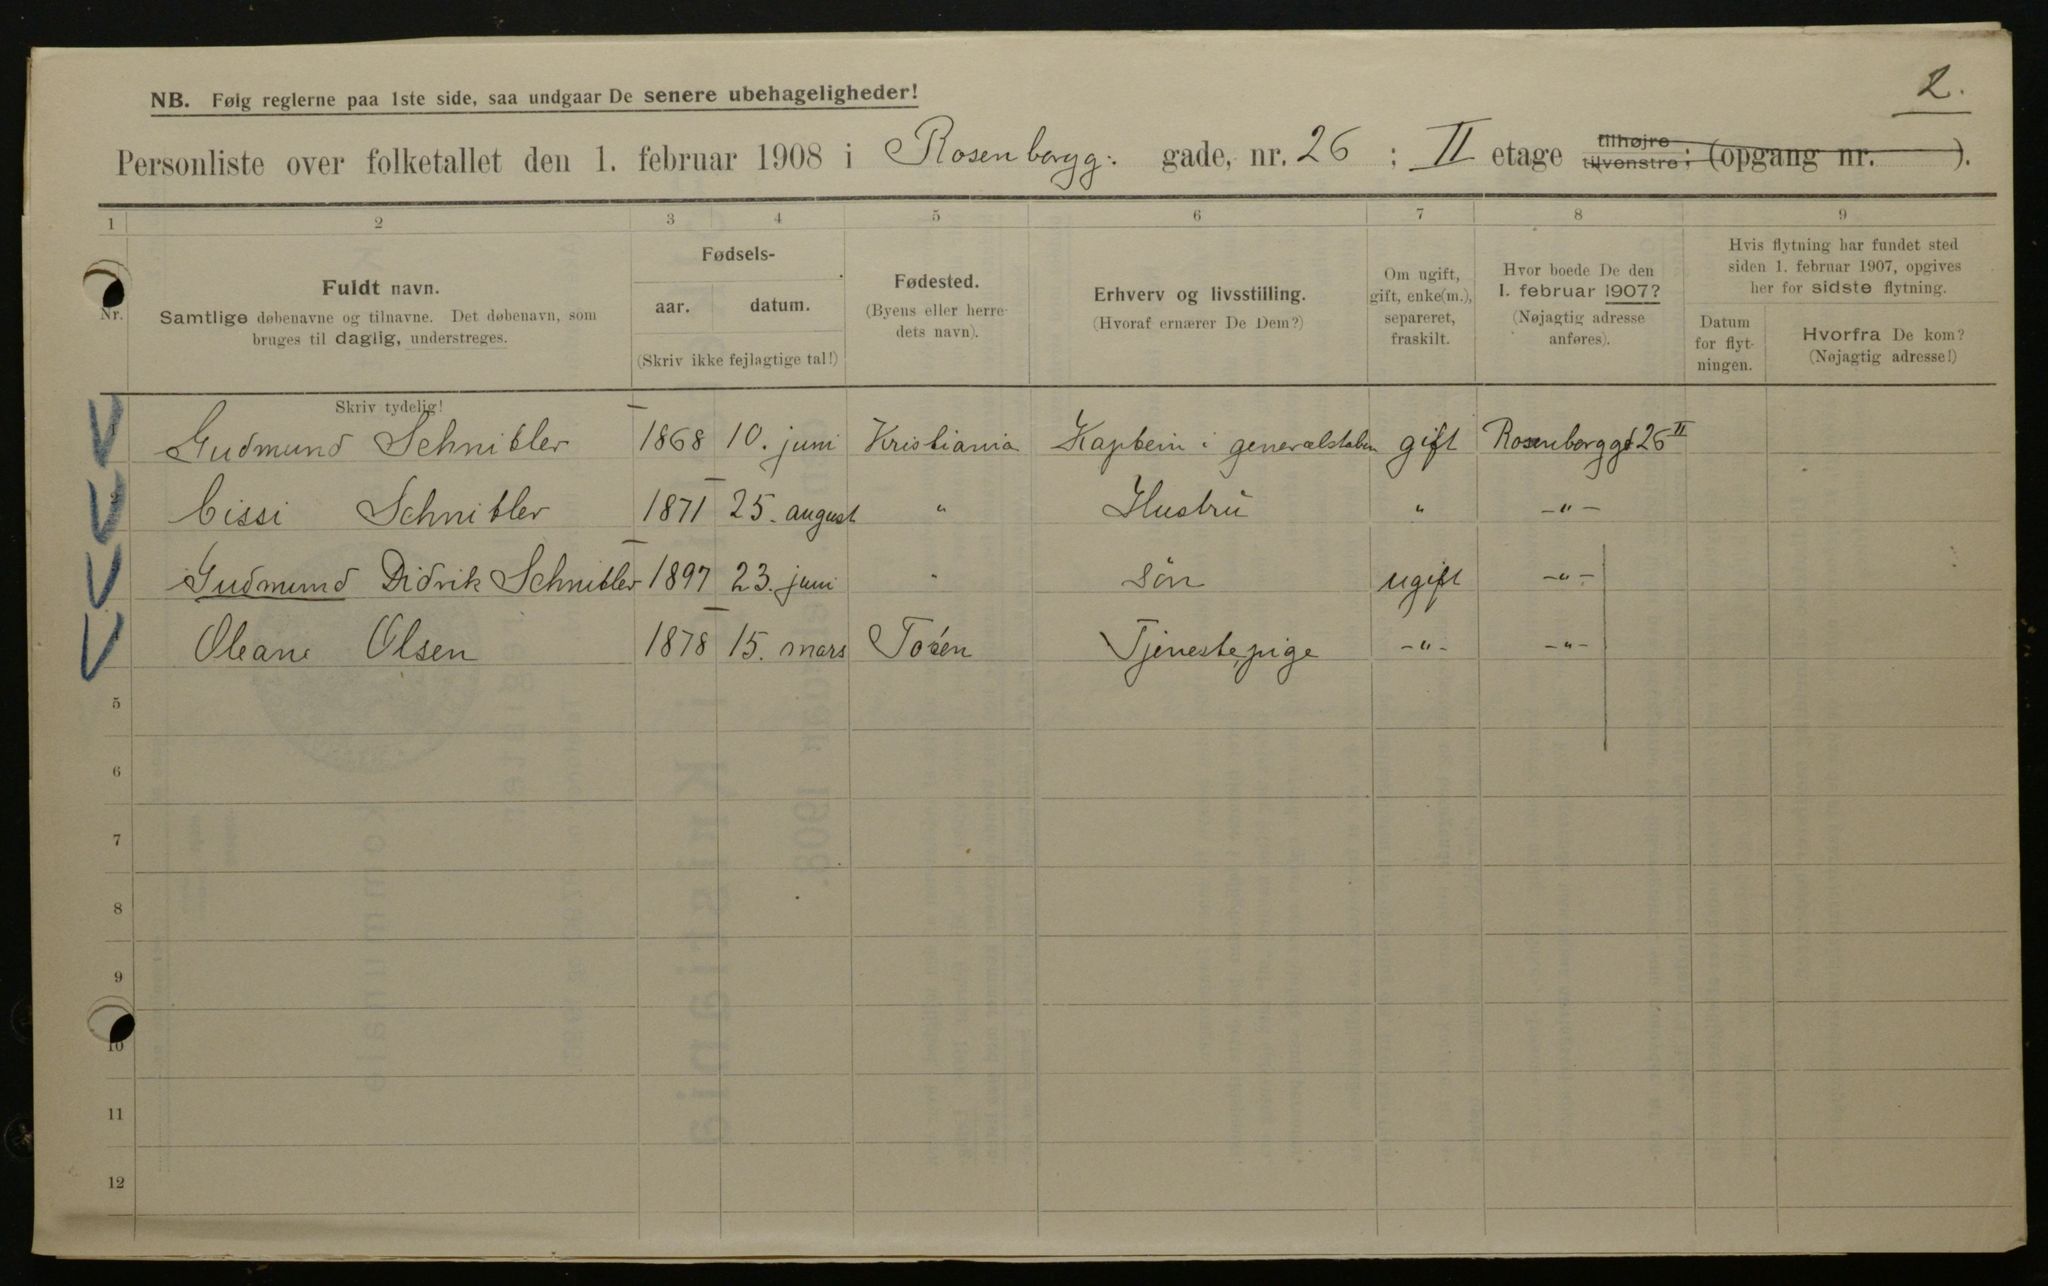 2.
NB. Følg reglerne paa 1ste side, saa undgaar De senere ubehageligheder!
Personliste over folketallet den 1. februar 1908 i Rosenborgg. gade, nr. 26 ; II etage tilhøjre tilvenstre; (opgang nr. ).
1 2 3 4 5 6 7 8 9
Nr.
Fuldt navn.
Samtlige døbenavne og tilnavne. Det døbenavn, som
bruges til daglig, understreges.
Fødsels-
aar. datum.
(Skriv ikke fejlagtige tal!)
Fødested.
(Byens eller herre-
dets navn).
Erhverv og livsstilling.
(Hvoraf ernærer De Dem?)
Om ugift,
gift, enke(m.),
separeret,
fraskilt.
Hvor boede De den
1. februar 1907?
(Nøjagtig adresse
anføres).
Hvis flytning har fundet sted
siden 1. februar 1907, opgives
her for sidste flytning.
Datum
for flyt-
ningen.
Hvorfra De kom?
(Nøjagtig adresse!)
Skriv tydelig!
Gudmund Schnitler 1868 10. juni Kristiania Kaptein i generalstaben gift Rosenborggt 26 II
Cissi Schnitler 1871 25. august " Hustru " -"-
Gudmund Didrik Schnitler 1897 23. juni " søn ugift -"-
Oleane Olsen 1878 15. mars Tjenestepige -"- -"-
5
6
7
8
9
10
11
12